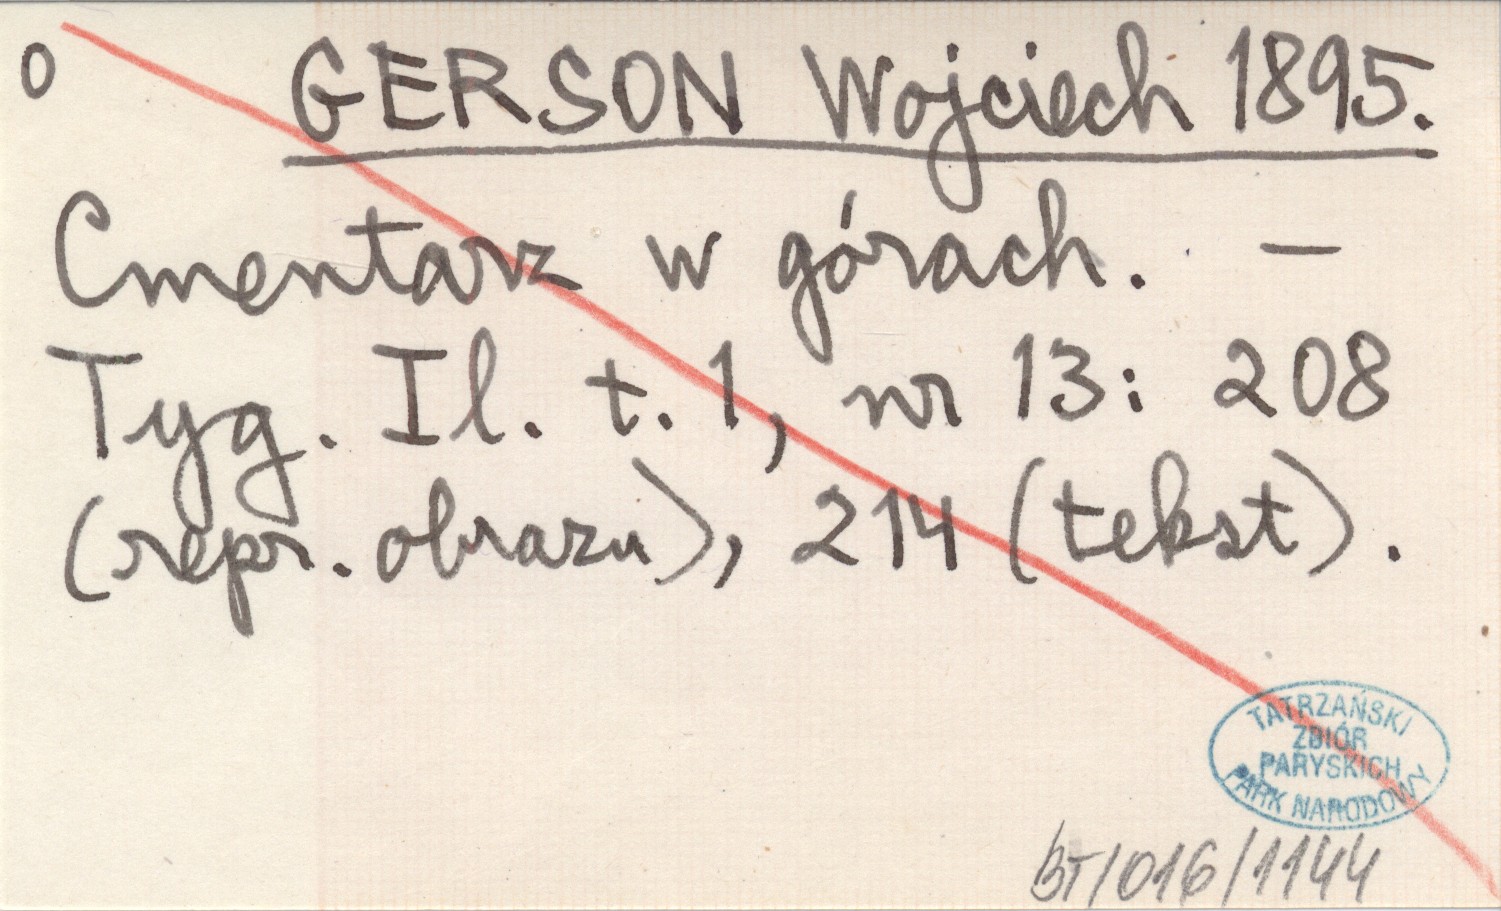 0 GERSON Wojciech 1895.
Cmentarz w górach. —
Tyg. Il. t. 1, nr 13: 208
(repr. obrazu), 214 (tekst).
TATRZAŃSKI
ZBIÓR
PARYSKICH
PARK NARODOWY
BT/016/1144